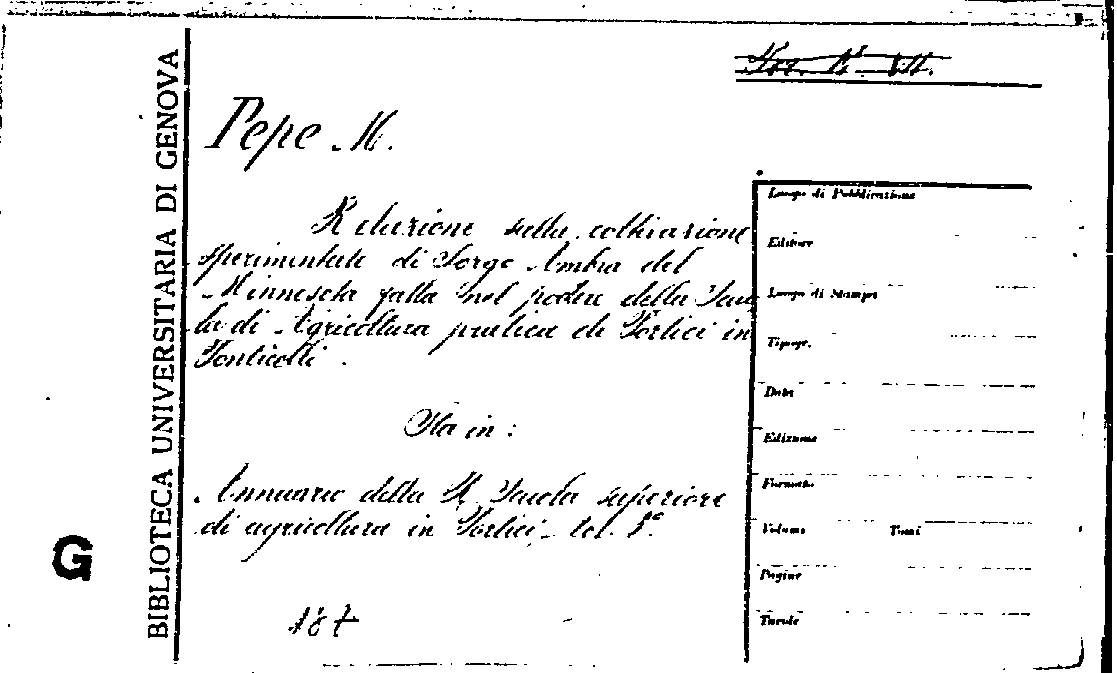 BIBLIOTECA UNIVERSITARIA DI GENOVA
G
Pepe M.
Relazione sulla coltivazione
sperimentale di Sorgo Ambra del
Minnesota fatta nel podere della Scuo
la di Agricoltura pratica di Portici in
Ponticelli.
Sta in:
Annuario della R. Scuola superiore
di agricoltura in Portici, vol. 
Luogo di Pubblicazione
Editore
Luogo di Stampa
Tipogr.
Data
Edizione
Formato
Volume Tomi
Pagine
Tavole